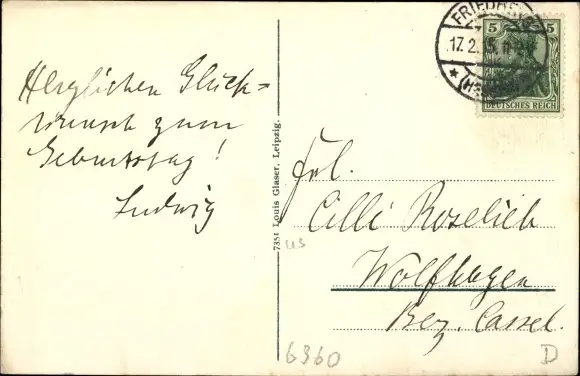 Herzlichen Glück=
wunsch zum
Geburtstag!
Ludwig
7351 Louis Glaser, Leipzig.
17.2.
5 5
DEUTSCHES REICH
Frl.
Cilli Roselieb
Wolfhagen
Bez. Cassel.
us
6360
D